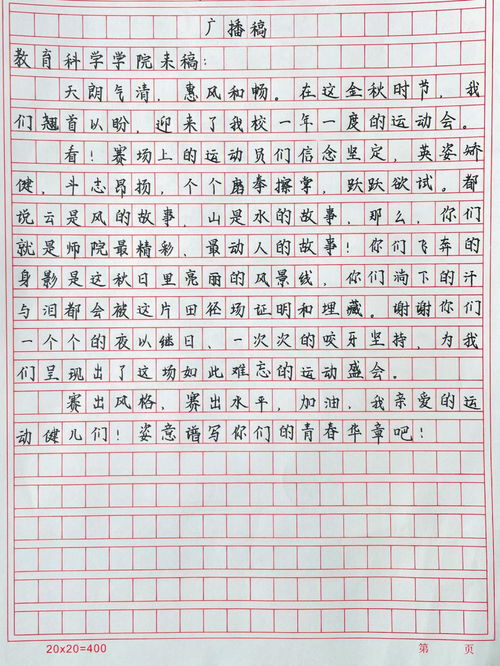 广播稿
教育科学学院来稿：
天朗气清，惠风和畅。在这金秋时节，我
们翘首以盼，迎来了我校一年一度的运动会。
看！赛场上的运动员们信念坚定，英姿矫
健，斗志昂扬，个个磨拳擦掌，跃跃欲试。都
说云是风的故事，山是水的故事，那么，你们
就是师院最精彩、最动人的故事！你们飞奔的
身影是这秋日里亮丽的风景线，你们淌下的汗
与泪都会被这片田径场证明和埋藏。谢谢你们
一个个的夜以继日、一次次的咬牙坚持，为我
们呈现出了这场如此难忘的运动盛会。
赛出风格，赛出水平，加油，我亲爱的运
动健儿们！姿意谱写你们的青春华章吧！
20×20=400 第 页